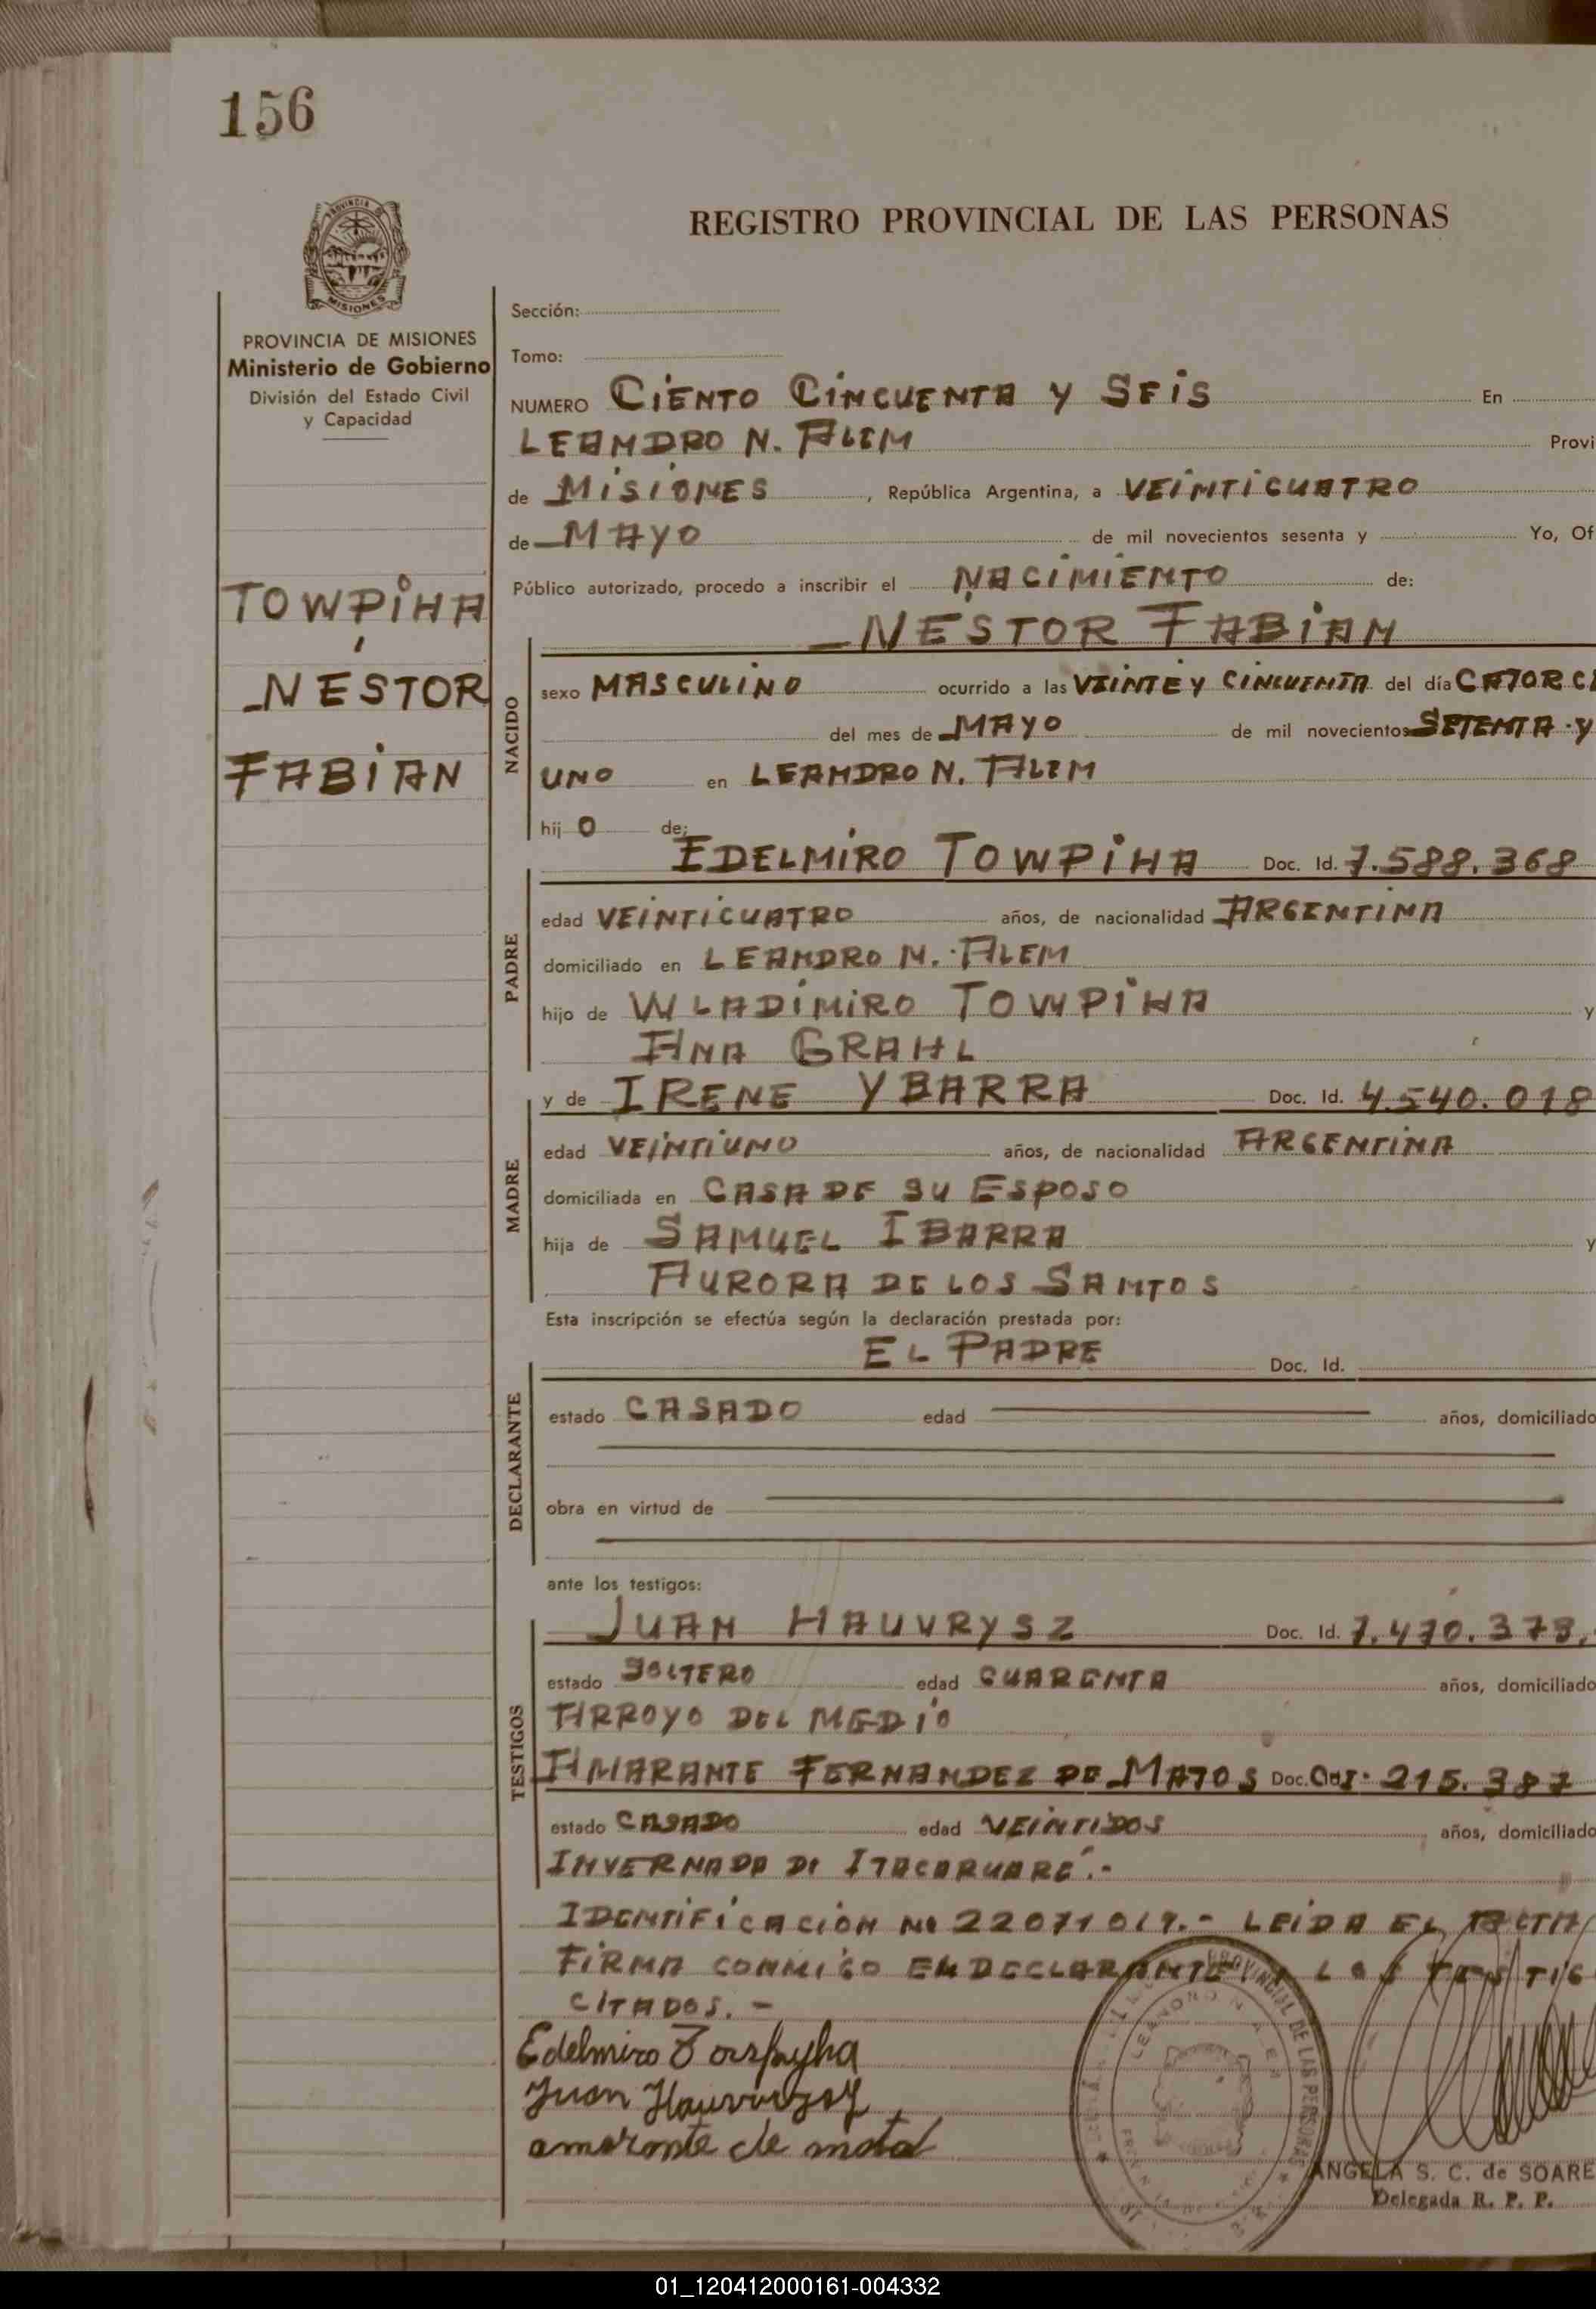 156
MISIONES
PROVINCIA DE MISIONES
Ministerio de Gobierno
División del Estado Civil
y Capacidad
TOWPIHA
NESTOR
FABIAN
REGISTRO PROVINCIAL DE LAS PERSONAS
Sección:
Tomo:
NUMERO CIENTO CINCUENTA Y SEIS En
LEANDRO N. ALEM Provi
de MISIONES, República Argentina, a VEINTICUATRO
de MAYO de mil novecientos sesenta y Yo, Of
Público autorizado, procedo a inscribir el NACIMIENTO de:
NESTOR FABIAN
NACIDO
sexo MASCULINO ocurrido a las VEINTE Y CINCUENTA del día CATORCE
del mes de MAYO de mil novecientos SETENTA Y
UNO en LEANDRO N. ALEM
hij O de:
EDELMIRO TOWPIHA Doc. Id. 7.588.368
PADRE
edad VEINTICUATRO años, de nacionalidad ARGENTINA
domiciliado en LEANDRO N. ALEM
hijo de WLADIMIRO TOWPIHA y
ANA GRAHL
y de IRENE YBARRA Doc. Id. 4.540.018
MADRE
edad VEINTIUNO años, de nacionalidad ARGENTINA
domiciliada en CASA DE SU ESPOSO
hija de SAMUEL IBARRA y
AURORA DE LOS SANTOS
Esta inscripción se efectúa según la declaración prestada por:
EL PADRE Doc. Id.
DECLARANTE
estado CASADO edad años, domiciliado
obra en virtud de
ante los testigos:
JUAN HAUVRYSZ Doc. Id. 7.470.373,
TESTIGOS
estado SOLTERO edad CUARENTA años, domiciliado
ARROYO DEL MEDIO
AMARANTE FERNANDEZ DE MATOS Doc. 215.387
estado CASADO edad VEINTIDOS años, domiciliado
INVERNADA DE ITACARUARE.-
IDENTIFICACION No 22071019.- LEIDA EL ACTA
FIRMA CONMIGO EL DECLARANTE Y LOS TESTIG
CITADOS.-
Edelmiro
Juan
amarante de
PROVINCIAL DE LAS PERSONAS
LEANDRO N. ALEM
ANGELA S. C. de SOARE
Delegada R. P. P.
01_120412000161-004332